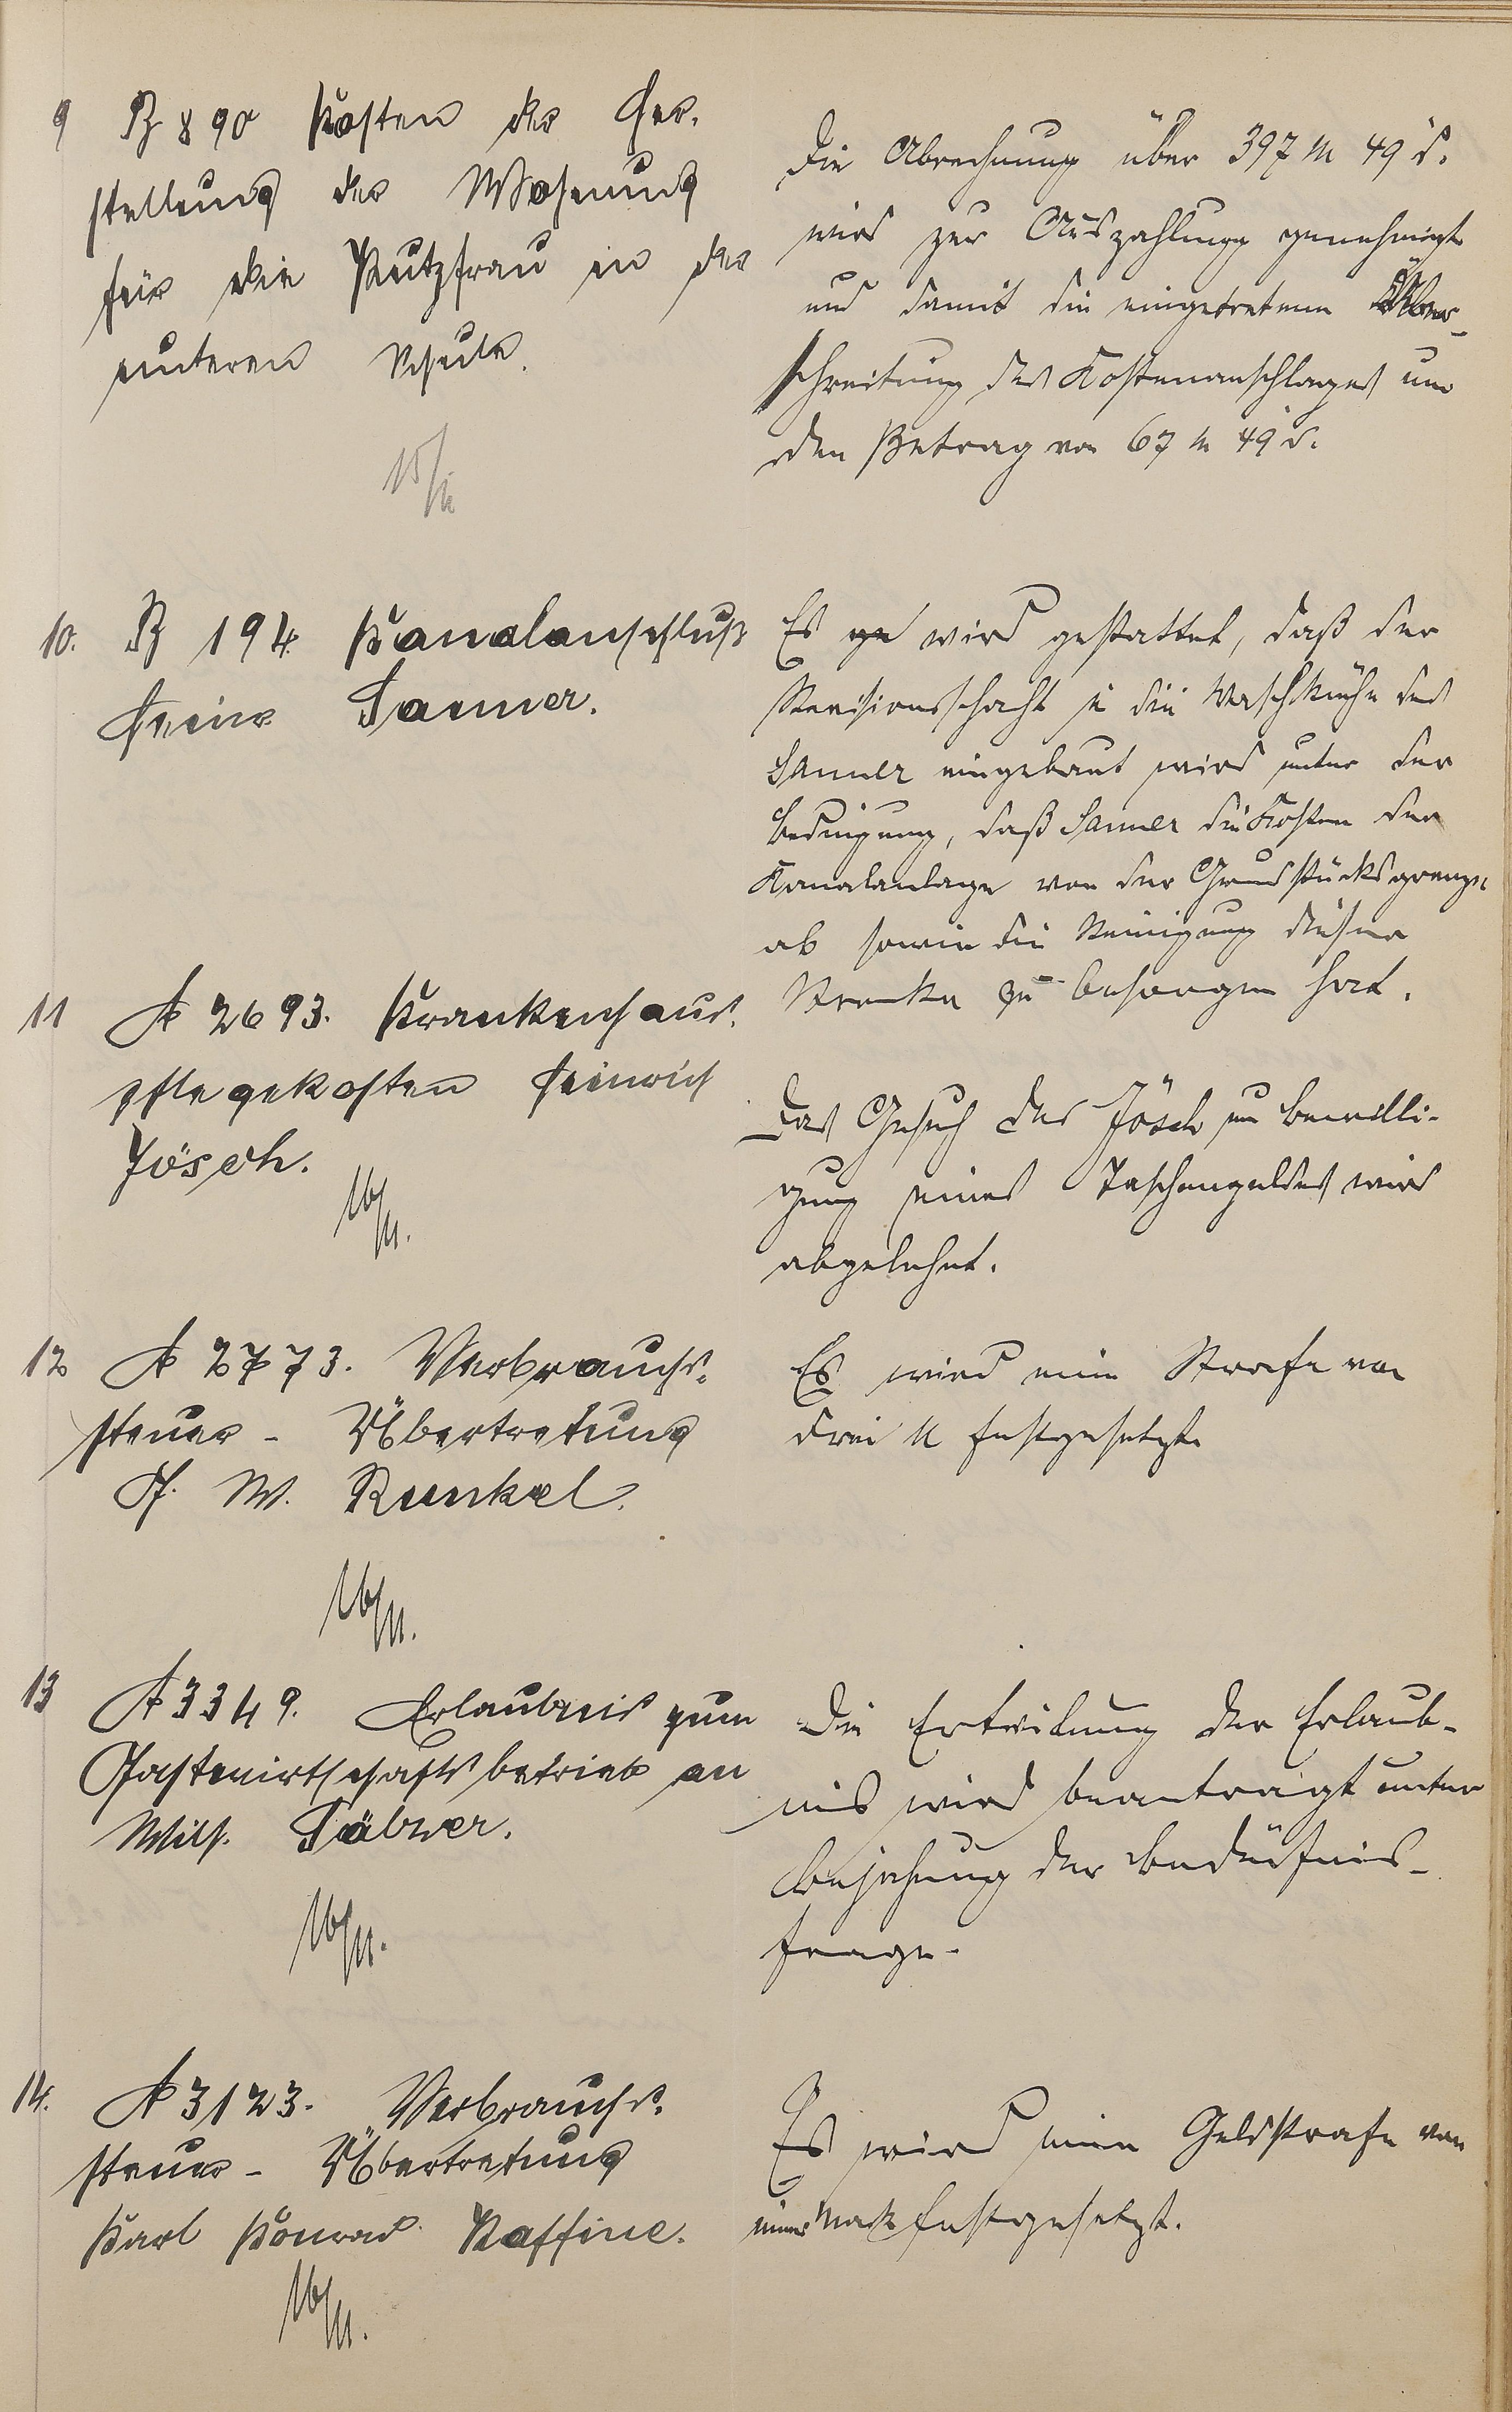 9 B 890 Kosten der Her-
stellung der Wohnung
für die Putzfrau in der
unteren Schule.
15/11
Die Abrechnung über 397 M 49 d.
wird zur Auszahlung genehmigt
und damit die eingetretene Über-
schreitung des Kostenanschlages um
den Betrag von 67 M 49 d.
10. B 194. Kanalanschluß
Heinr Sanner.
Es wird gestattet, daß der
Revisionsschacht in die Waschküche des
Sanner eingebaut wird unter der
Bedingung, daß Sanner die Kosten der
Kanalanlage von der Grundstücksgrenze
ab sowie die Reinigung dieser
Strecke zu besorgen hat.
11 A 2693. Krankenhaus-
pflegekosten Heinrich
Jösch.
16/11.
Das Gesuch des Jösch um Bewilli-
gung eines Taschengeldes wird
abgelehnt.
12 A 2773. Verbrauchs-
steuer - Übertretung
F. W. Runkel.
16/11.
Es wird eine Strafe von
drei M festgesetzt.
13 A 3349. Erlaubnis zum
Gastwirtschaftsbetrieb an
Wilh. Täbner.
16/11.
Die Erteilung der Erlaub-
nis wird beantragt unter
Bejahung der Bedürfnis-
frage.
14. A 3123. Verbrauchs-
steuer - Übertretung
Karl Konrad Raffine.
16/11.
Es wird eine Geldstrafe von
einer Mark festgesetzt.